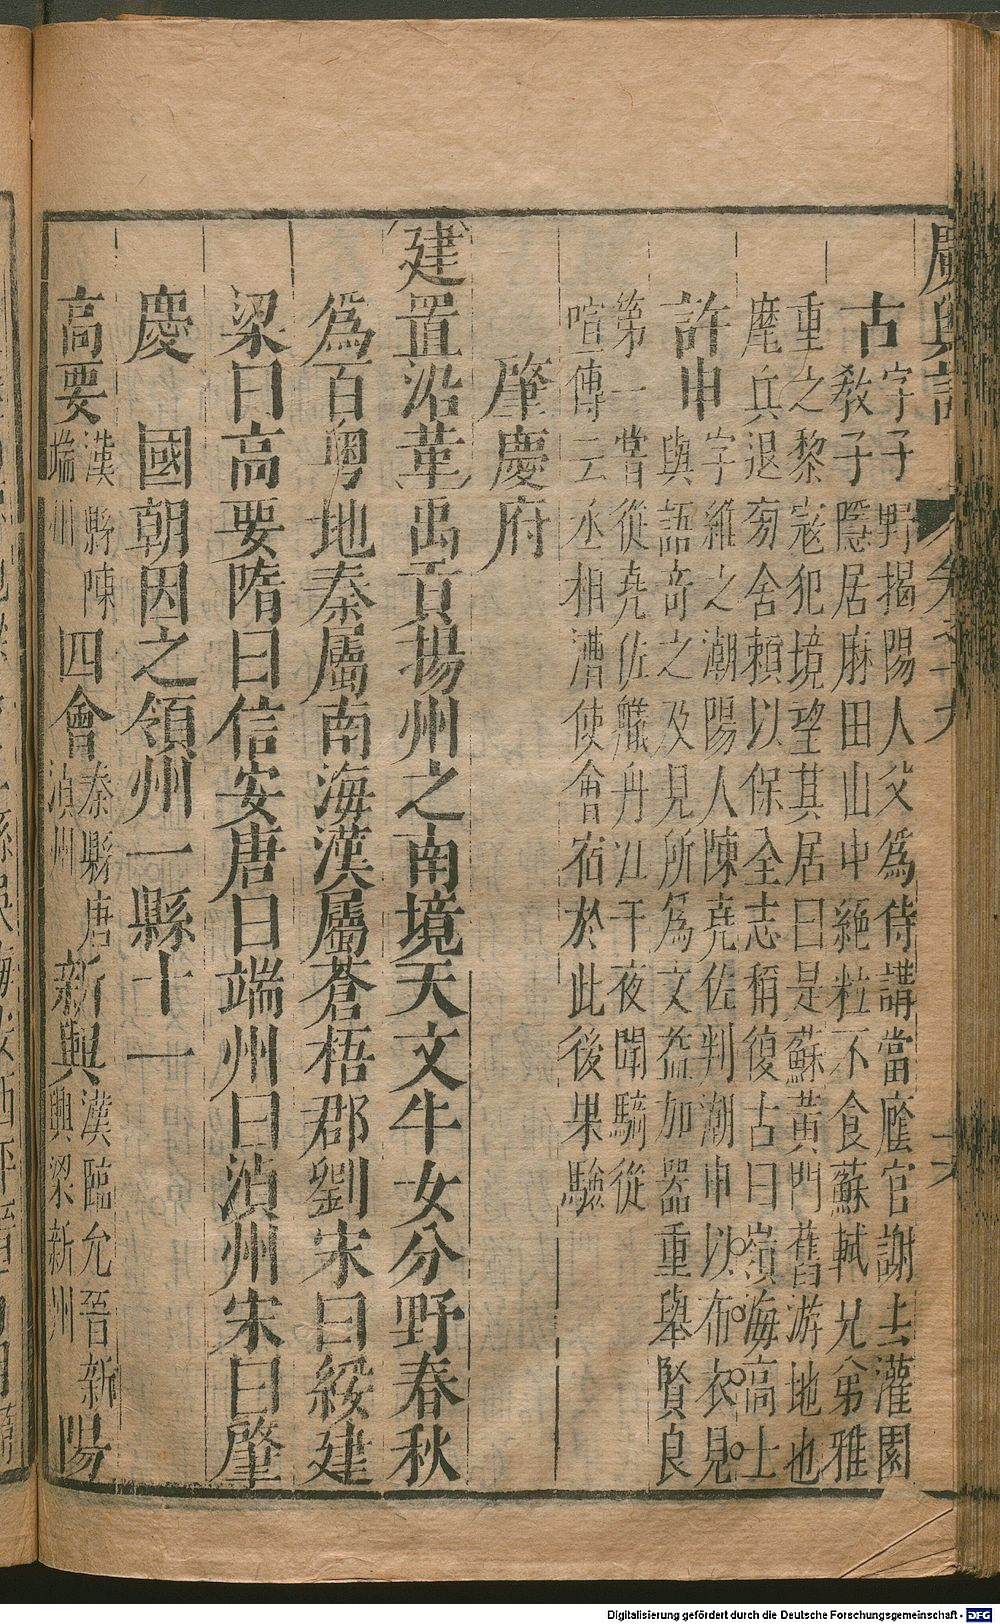 廣輿記
卷之十九
十六
古字子野揭陽人父爲侍講當麾官謝去灌園
教子隱居麻田山中絕粒不食蘇軾兄弟雅
重之黎寇犯境望其居曰是蘇黃門舊游地也
麾兵退匆舍賴以保全志稱復古曰嶺海高士
許申字維之潮陽人陳堯佐判潮申以布衣見
與語奇之及見所爲文益加器重舉賢良
第一嘗從堯佐艤舟江干夜聞騎從
喧傳云丞相漕使會宿於此後果驗
肇慶府
建置沿革禹貢揚州之南境天文牛女分野春秋
爲百粤地秦屬南海漢屬蒼梧郡劉宋曰綏建
梁曰高要隋曰信安唐曰端州曰湞州宋曰肇
慶 國朝因之領州一縣十一
高要漢縣陳端州四會秦縣唐湞州新興漢臨允晉新興梁新州陽
Digitalisierung gefördert durch die Deutsche Forschungsgemeinschaft - DFG